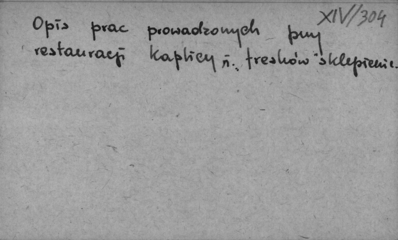 XIV/304
Opis prac prowadzonych przy
restauracji Kaplicy n. fresków sklepienie.